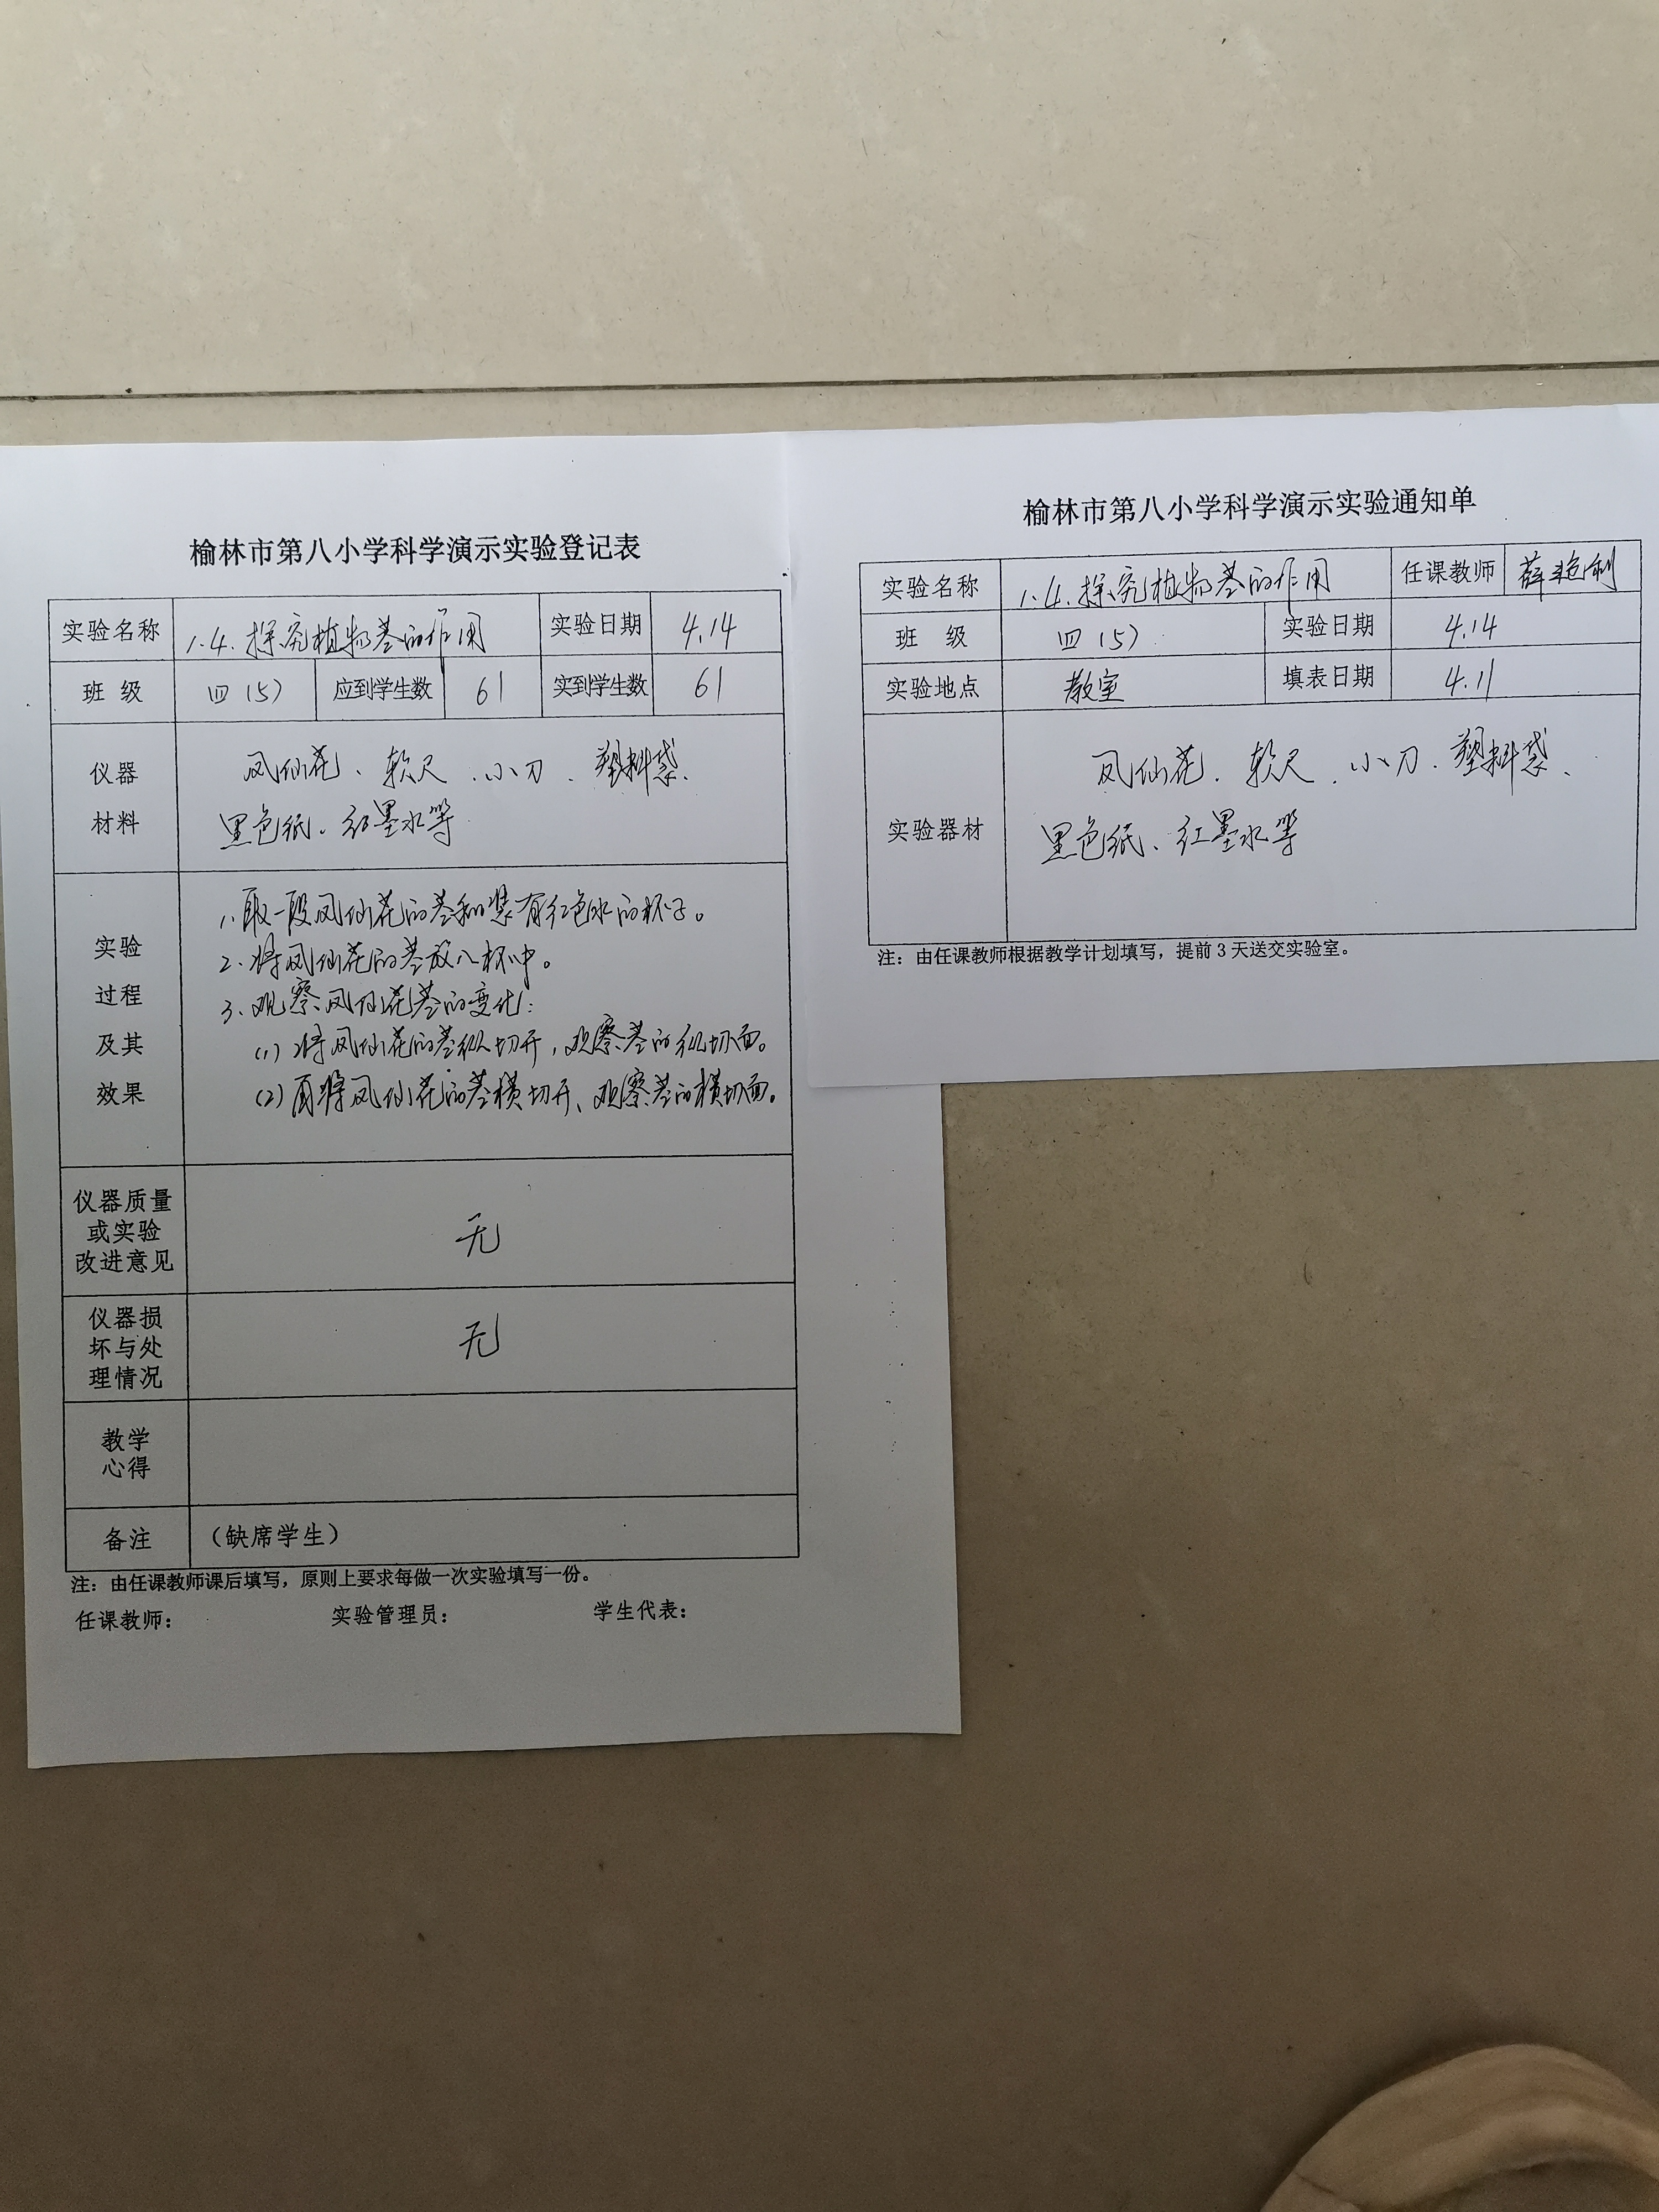 榆林市第八小学科学演示实验登记表
实验名称 1.4.探究植物茎的作用 实验日期 4.14
班 级 四(5) 应到学生数 61 实到学生数 61
仪器
材料
凤仙花、软尺、小刀、塑料袋、
黑色纸、红墨水等
实验
过程
及其
效果
1、取一段凤仙花的茎和装有红色水的杯子。
2、将凤仙花的茎放入杯中。
3、观察凤仙花茎的变化:
(1)将凤仙花的茎纵切开,观察茎的纵切面。
(2)再将凤仙花的茎横切开、观察茎的横切面。
仪器质量
或实验
改进意见
无
仪器损
坏与处
理情况
无
教学
心得
备注 (缺席学生)
注:由任课教师课后填写,原则上要求每做一次实验填写一份。
任课教师: 实验管理员: 学生代表:
榆林市第八小学科学演示实验通知单
实验名称 1.4.探究植物茎的作用 任课教师 薛艳利
班 级 四(5) 实验日期 4.14
实验地点 教室 填表日期 4.11
实验器材
凤仙花、软尺、小刀、塑料袋、
黑色纸、红墨水等
注:由任课教师根据教学计划填写,提前3天送交实验室。